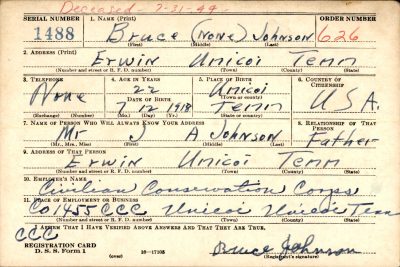 Deceased 7-31-44
SERIAL NUMBER 1. NAME (Print) ORDER NUMBER
1488 Bruce (none) Johnson 626
(First) (Middle) (Last)
2. ADDRESS (Print)
Erwin Unicoi Tenn
(Number and street or R. F. D. number) (Town) (County) (State)
3. TELEPHONE 4. AGE IN YEARS 5. PLACE OF BIRTH 6. COUNTRY OF CITIZENSHIP
None 22 Unicoi U.S.A.
DATE OF BIRTH (Town or county)
7 12 1918 Tenn
(Exchange) (Number) (Mo.) (Day) (Yr.) (State or country)
7. NAME OF PERSON WHO WILL ALWAYS KNOW YOUR ADDRESS 8. RELATIONSHIP OF THAT PERSON
Mr J A Johnson Father
(Mr., Mrs., Miss) (First) (Middle) (Last)
9. ADDRESS OF THAT PERSON
Erwin Unicoi Tenn
(Number and street or R. F. D. number) (Town) (County) (State)
10. EMPLOYER'S NAME
Civilian Conservation Corps
11. PLACE OF EMPLOYMENT OR BUSINESS
Co 1455 CCC Unicoi Unicoi Tenn
(Number and street or R. F. D. number) (Town) (County) (State)
I AFFIRM THAT I HAVE VERIFIED ABOVE ANSWERS AND THAT THEY ARE TRUE.
CCC
REGISTRATION CARD
D. S. S. Form 1 (over) 16-17105
Bruce Johnson